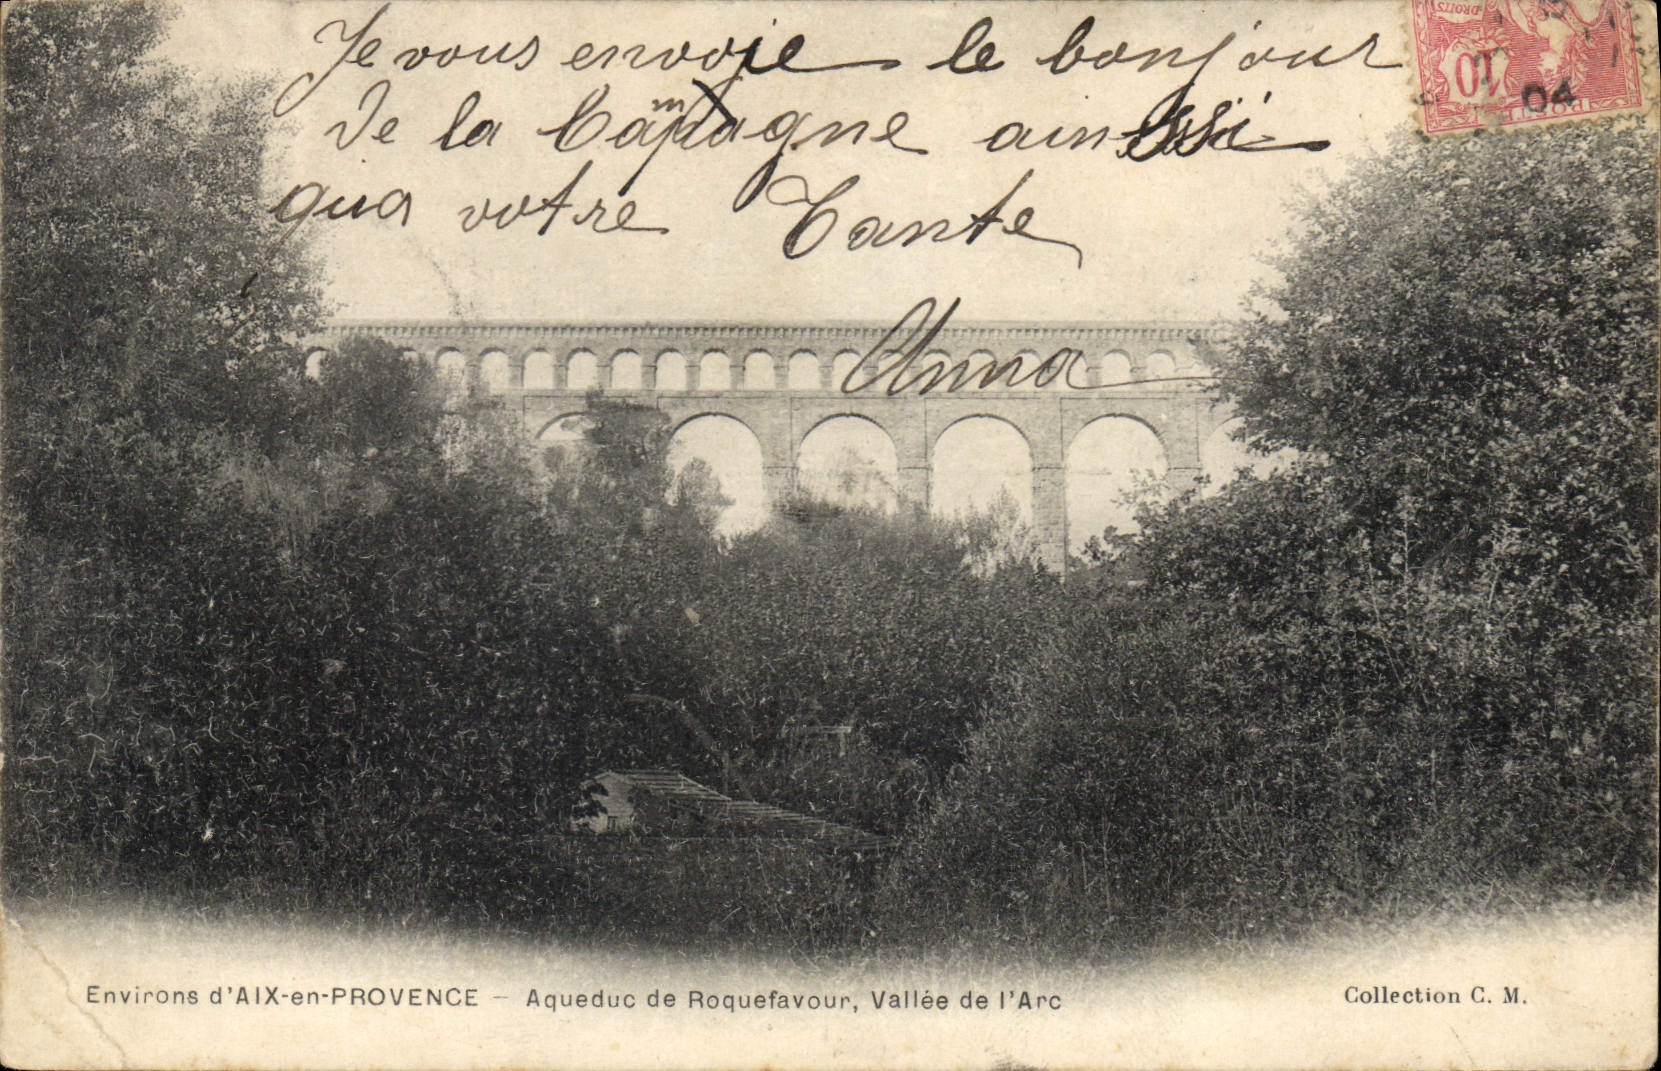 Je vous envoie le bonjour
de la Campagne ainssi
qua votre Tante
Anna
10
04
Environs d'AIX-en-PROVENCE — Aqueduc de Roquefavour, Vallée de l'Arc
Collection C. M.